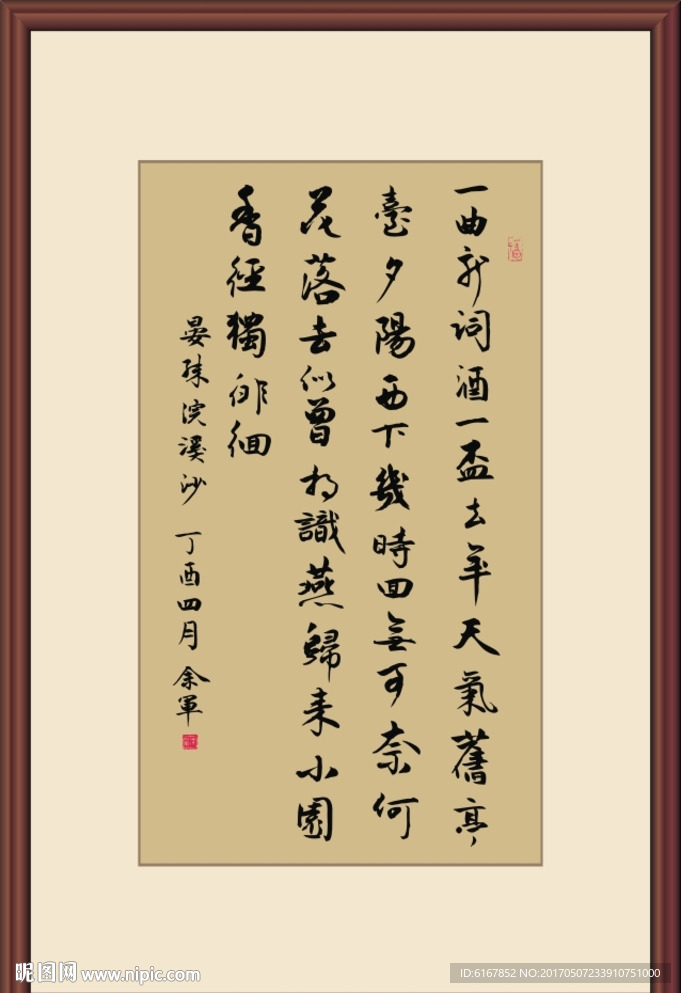 一曲新词酒一盃去年天氣舊亭
臺夕陽西下幾時回無可奈何
花落去似曾相識燕歸来小園
香徑獨徘徊
晏殊浣溪沙 丁酉四月 余軍
昵图网 www.nipic.com
ID:6167852 NO:20170507233910751000